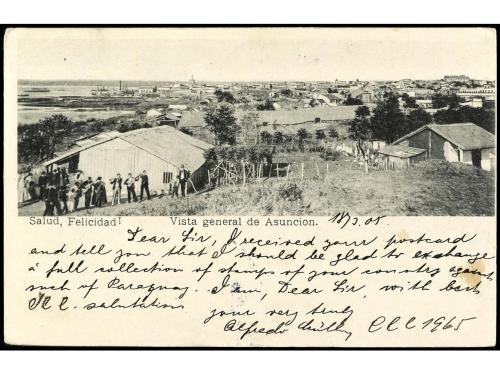 Salud, Felicidad!
Vista general de Asuncion. 18/3.05
Dear Sir, I received yourr postcard
and tell you that I should be glad to exchange
a full collection of stamps of your country against
such of Paraguay. I am, Dear Sir, with best
salutations
your very truly
Alfredo CCC 1965